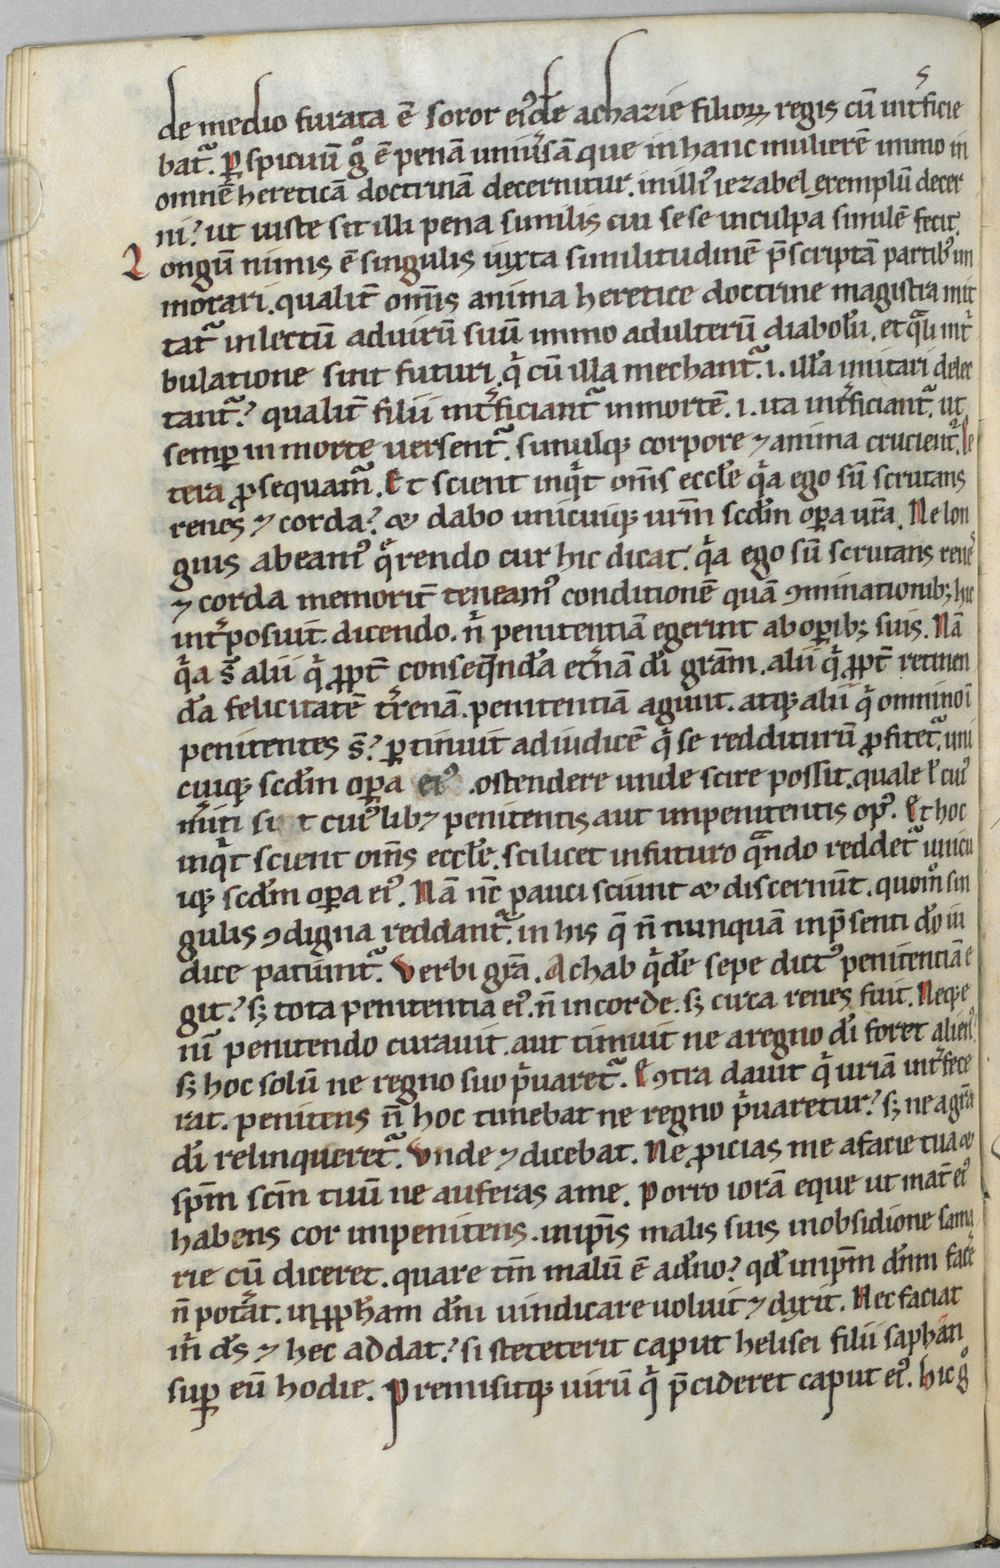 de medio furata ē soror eiꝰdē achazie filioꝝ regis cū int͛ficie
bat᷑. ꝑspicuū g̊ ē penā uniũsā que in hanc mulierē immo in
omnē hereticā doctrinā decernitur. in illiꝰ iezabel exemplū decer
ni? ut iuste sit illi pena similis cui sese in culpa similē fecit.
Longū nimis ē singulis iuxta similitudinē p̄scriptā partibꝰ im
morari. qualit̄ om̄is anima heretice doctrine magistra mit
tat᷑ in lectū ad uirū suū immo adulterū diabolū. et q̄li int͛
bulatione sint futuri. q̇ cū illa mechant᷑. i. illā imitari delec
tant᷑? qualit̄ filii int͛ficiant᷑ in mortē. i. ita int͛ficiant᷑. ut
semꝑ in morte uersent᷑. simulqꝫ corpore ⁊ anima crucient᷑. Ce
tera ꝓsequam᷑. Et scient inq̇t om̄s eccl̄e q̇a ego sū scrutans
renes ⁊ corda? & dabo unicuiqꝫ ur̄m scd̄m oꝑa ur̄a. Ne lon
gius abeamꝰ q̄rendo cur hic dicat. q̇a ego sū scrutans renes
⁊ corda memorit̄ teneamꝰ conditionē quā ꝯminationibꝫ hic
int͛posuit dicendo. n̓ penitentiā egerint ab oꝑibꝫ suis. Nā
q̇a s̄ alii q̇ ꝓpt̄ conseq̄ndā et͛nā di̅ gr̄am. alii q̇ ꝓpt̄ retinen
dā felicitatē t͛renā. penitentiā agunt. atqꝫ alii q̇ omnino ī
penitentes s̄? ꝑtinuit ad iudicē q̇ se redditurū ꝓfitet᷑. uni
cuiqꝫ scd̄m oꝑa eiꝰ. ostendere unde scire possit. quale ł cuiꝰ
m͛iti si t cuiꝰlibꝫ penitentis aut inpenitentis opꝰ. Et hoc
inq̇t scient om̄s eccl̄e. scilicet in futuro q̄ndo reddet᷑ unicu
iqꝫ scd̄m oꝑa eiꝰ. Nā nc̄ pauci sciunt & discernūt. quom̊ sin
gulis ꝯdigna reddant᷑. in his q̄ n̄ nunquā in p̄senti dō iu
dice patiunt᷑. Verbi gr̄a. Achab q̇dē sepe dictꝰ penitentiā e
git? sꝫ tota penitentia eiꝰ. n̄ in corde. sꝫ circa renes fuit. Neqꝫ e
nī penitendo curauit. aut timuit ne a regno di̅ foret alienꝰ.
sꝫ hoc solū ne regno suo ṗuaret᷑. E ꝯtra dauit q̇ uriā int͛fece
rat. penitens n̄ hoc timebat ne regno ṗuaretur? sꝫ ne a gr̄a
di̅ relinqueret᷑. Vnde ⁊ dicebat. Ne ꝓicias me a facie tua &
sp̄m sc̄m tuū ne auferas a me. Porro iorā eque ut mat̄ eiꝰ
habens cor inpenitens. in ip̄is malis suis in obsidione sama
rie cū diceret. quare tm̄ malū ē a dn̄o? qd̄ in ip̄m dn̄m facͤre
n̄ pot͛at. in ꝓpħam dn̄i uindicare uoluit ⁊ dixit. Nec faciat
m̓ ds̄ ⁊ hec addat? si steteterit caput helisei filii saphān
suꝑ eū hodie. Premisitqꝫ uirū q̇ p̄cideret caput eiꝰ. Hic g̊